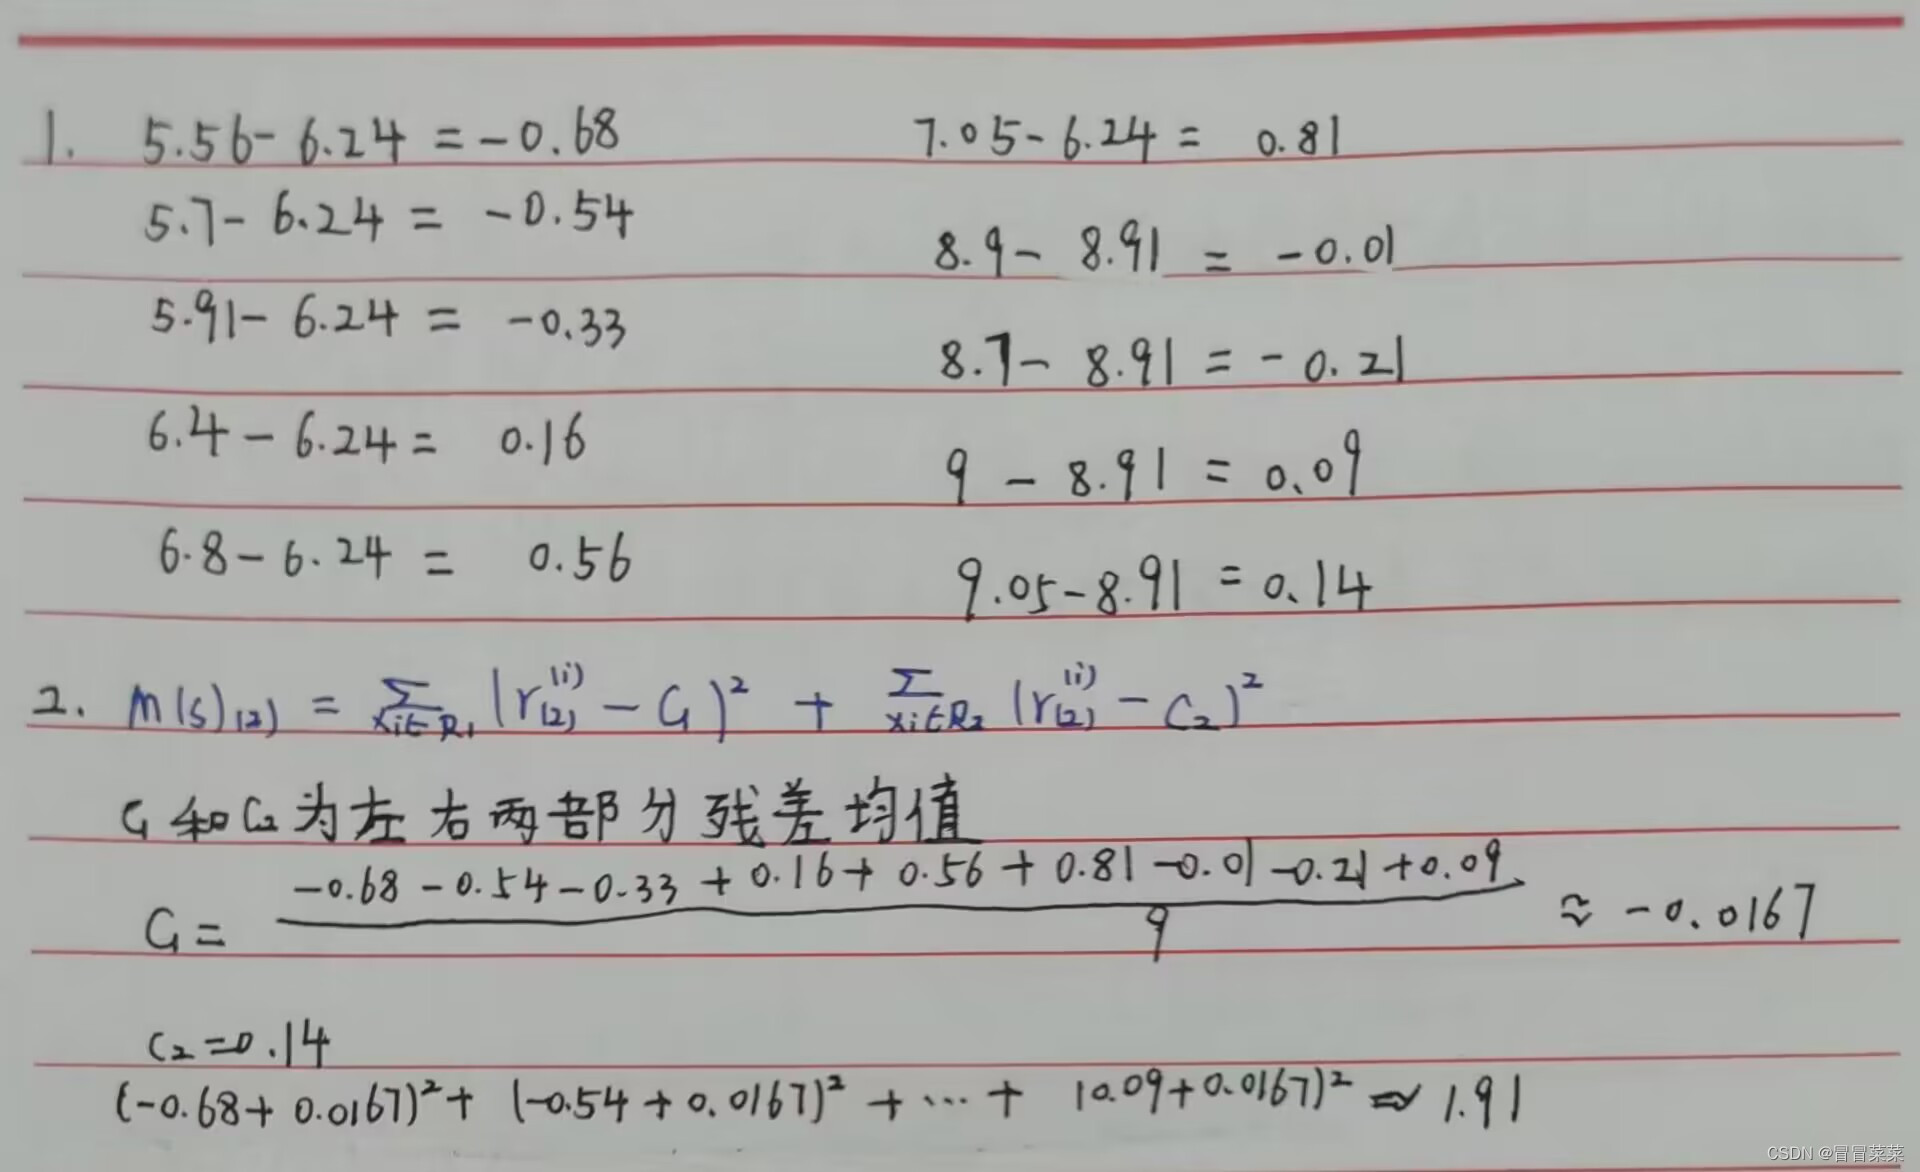 1. 5.56 - 6.24 = -0.68
5.7 - 6.24 = -0.54
5.91 - 6.24 = -0.33
6.4 - 6.24 = 0.16
6.8 - 6.24 = 0.56
7.05 - 6.24 = 0.81
8.9 - 8.91 = -0.01
8.7 - 8.91 = -0.21
9 - 8.91 = 0.09
9.05 - 8.91 = 0.14
2. m(s)(2) = Σ xi∈R1 (r(2)^(i) - C1)² + Σ xi∈R2 (r(2)^(i) - C2)²
C1和C2为左右两部分残差均值
-0.68 - 0.54 - 0.33 + 0.16 + 0.56 + 0.81 - 0.01 - 0.21 + 0.09
C1 = ≈ -0.0167
9
C2 = 0.14
(-0.68 + 0.0167)² + (-0.54 + 0.0167)² + ... + (0.09 + 0.0167)² ≈ 1.91
CSDN @冒冒菜菜